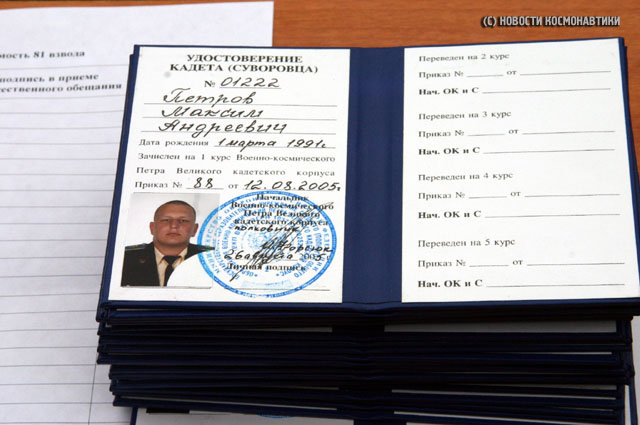 (C) НОВОСТИ КОСМОНАВТИКИ
мость 81 взвода
подпись в приеме
ественного обещания
УДОСТОВЕРЕНИЕ
КАДЕТА (СУВОРОВЦА)
№ 01222
Петров
Максим
Андреевич
Дата рождения 1 марта 1991г.
Зачислен на 1 курс Военно-космического
Петра Великого кадетского корпуса
Приказ № 88 от 12.08.2005г
Начальник
Военно-космического
Петра Великого
кадетского корпуса
полковник
26 августа 2005г.
Личная подпись
Переведен на 2 курс
Приказ № ______ от ______
Нач. ОК и С ______
Переведен на 3 курс
Приказ № ______ от ______
Нач. ОК и С ______
Переведен на 4 курс
Приказ № ______ от ______
Нач. ОК и С ______
Переведен на 5 курс
Приказ № ______ от ______
Нач. ОК и С ______